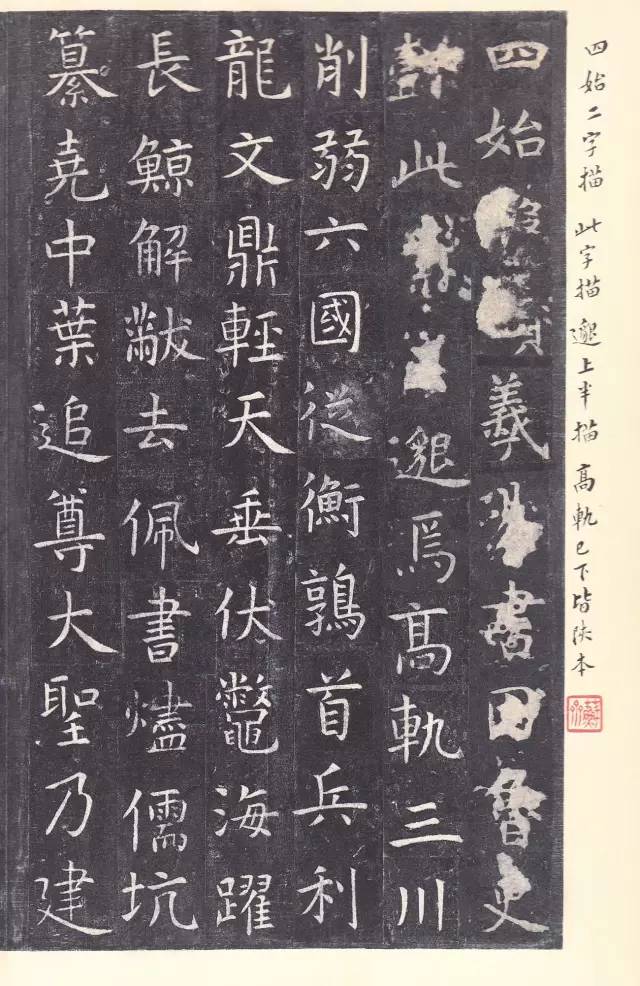 四始二字描 此字描 邈上半描 高軌已下皆陝本
四始羲書因魯史
此邈焉高軌三川
削弱六國從衡鶉首兵利
龍文鼎輕天垂伏鼈海躍
長鯨解黻去佩書燼儒坑
纂堯中葉追尊大聖乃建